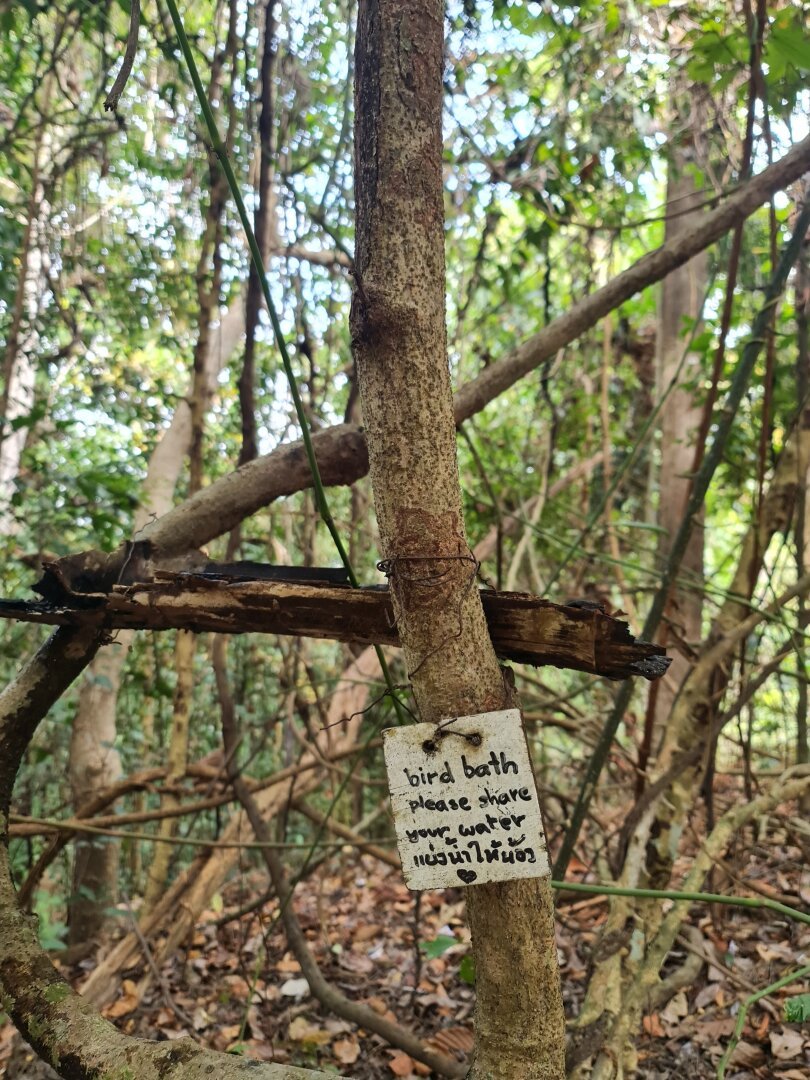 bird bath
please share
your water
แบ่งน้ำให้น้อง